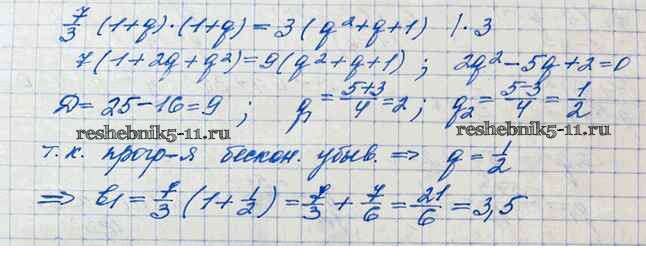 7/3 (1+q)·(1+q) = 3(q²+q+1) |·3
7(1+2q+q²)=9(q²+q+1) ; 2q²-5q+2=0
D=25-16=9 ; q₁=(5+3)/4=2 ; q₂=(5-3)/4=1/2
reshebnik5-11.ru reshebnik5-11.ru
т.к. прогр-я бескон. убыв. ⇒ q=1/2
⇒ b₁=7/3(1+1/2)=7/3+7/6=21/6=3,5